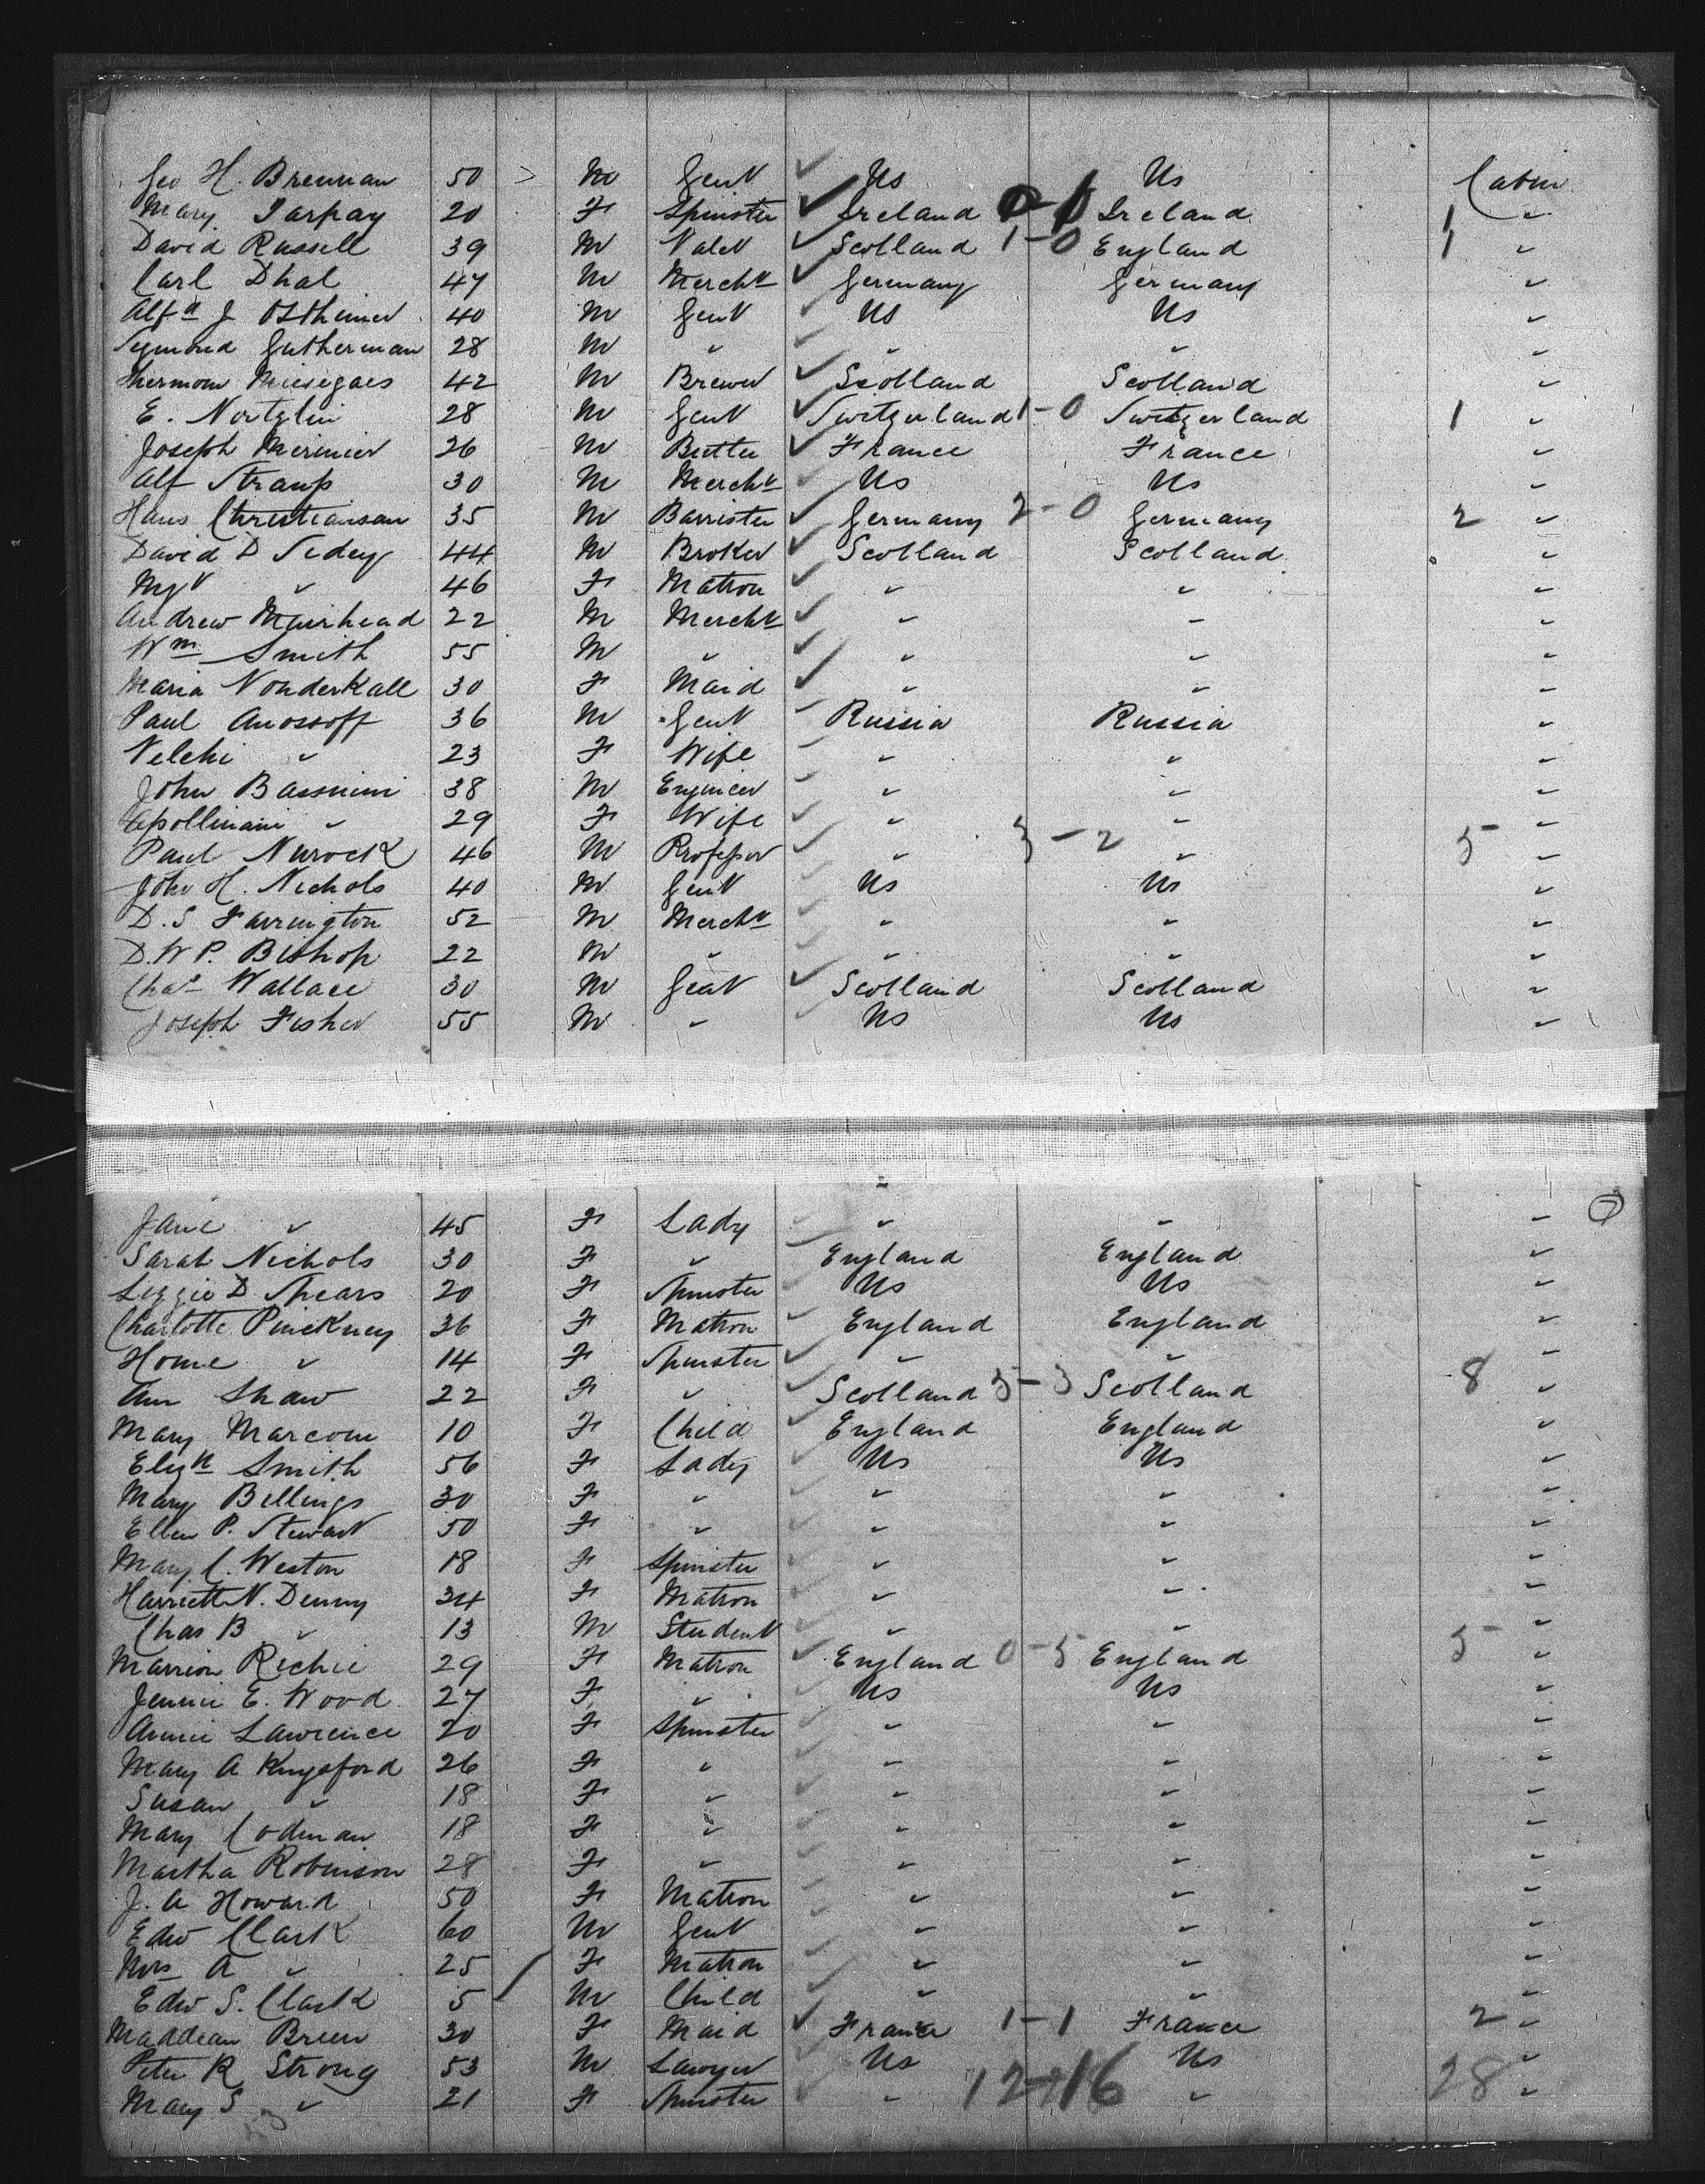 Geo H. Brennan 50 M Gent Us Us Cabin
Mary Tarpay 20 F Spinster Ireland 0-1 Ireland 1 "
David Russell 39 M Valet Scotland 1-0 England 1 "
Carl Dhal 47 M Mercht Germany Germany "
Alfd J Ostheimer 40 M Gent Us Us "
Sigmond Gutherman 28 M " " " "
Hermom Miesegaes 42 M Brewer Scotland Scotland "
E. Nortzlin 28 M Gent Switzerland 1-0 Switzerland 1 "
Joseph Merinier 26 M Butler France France "
Alf Straup 30 M Mercht Us Us "
Hans Christiansan 35 M Barrister Germany 2-0 Germany 2 "
David D Sedey 44 M Broker Scotland Scotland "
" 46 F Matron " " "
Andrew Muirhead 22 M Mercht " " "
Wm Smith 55 M " " " "
Maria VonderKall 30 F Maid " " "
Paul Anossoff 36 M Gent Russia Russia "
Velchi " 23 F Wife " " "
John Bassnini 38 M Engineer " " "
Apollinani " 29 F Wife " " "
Paul Nurock 46 M Professor " 3-2 " 5 "
John H. Nichols 40 M Gent Us Us "
D. S Farrington 52 M Mercht " " "
D. W P. Bishop 22 M " " " "
Chas Wallace 30 M Gent Scotland Scotland "
Joseph Fisher 55 M " Us Us "
Jane " 45 F Lady " " "
Sarah Nichols 30 F " England England "
Lizzie D Spears 20 F Spinster Us Us "
Charlotte Pinckney 36 F Matron England England "
Home " 14 F Spinster " " "
Ann Shaw 22 F " Scotland 5-3 Scotland 8 "
Mary Marcom 10 F Child England England "
Elizh Smith 56 F Lady Us Us "
Mary Billings 30 F " " " "
Ellen P. Stewart 50 F " " " "
Mary C. Weston 18 F Spinster " " "
Harriett N. Denny 34 F Matron " " "
Chas B " 13 M Student " " "
Marrion Richie 29 F Matron England 0-5 England 5 "
Jennie E. Wood 27 F " Us Us "
Annie Lawrence 20 F Spinster " " "
Mary A Kingsford 26 F " " " "
Susan " 18 F " " " "
Mary Codman 18 F " " " "
Martha Robinson 28 F " " " "
J. A Howard 50 F Matron " " "
Edw Clark 60 M Gent " " "
Mrs A " 25 F Matron " " "
Edw S. Clark 5 M Child " " "
Maddean Breen 30 F Maid France 1-1 France 2 "
Peter R Strong 53 M Lawyer Us Us "
Mary S " 21 F Spinster " 12-16 " 28 "
53